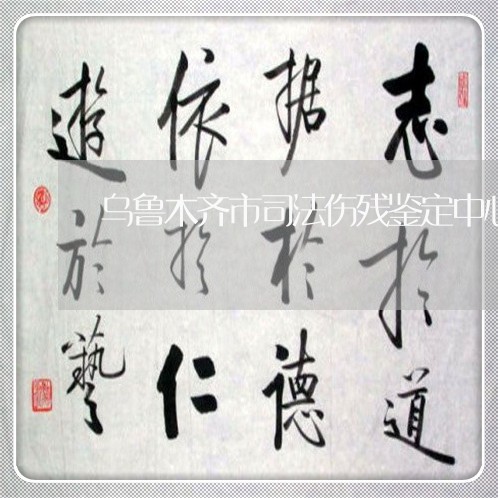 志於道
据於德
依於仁
遊於藝
乌鲁木齐市司法伤残鉴定中心